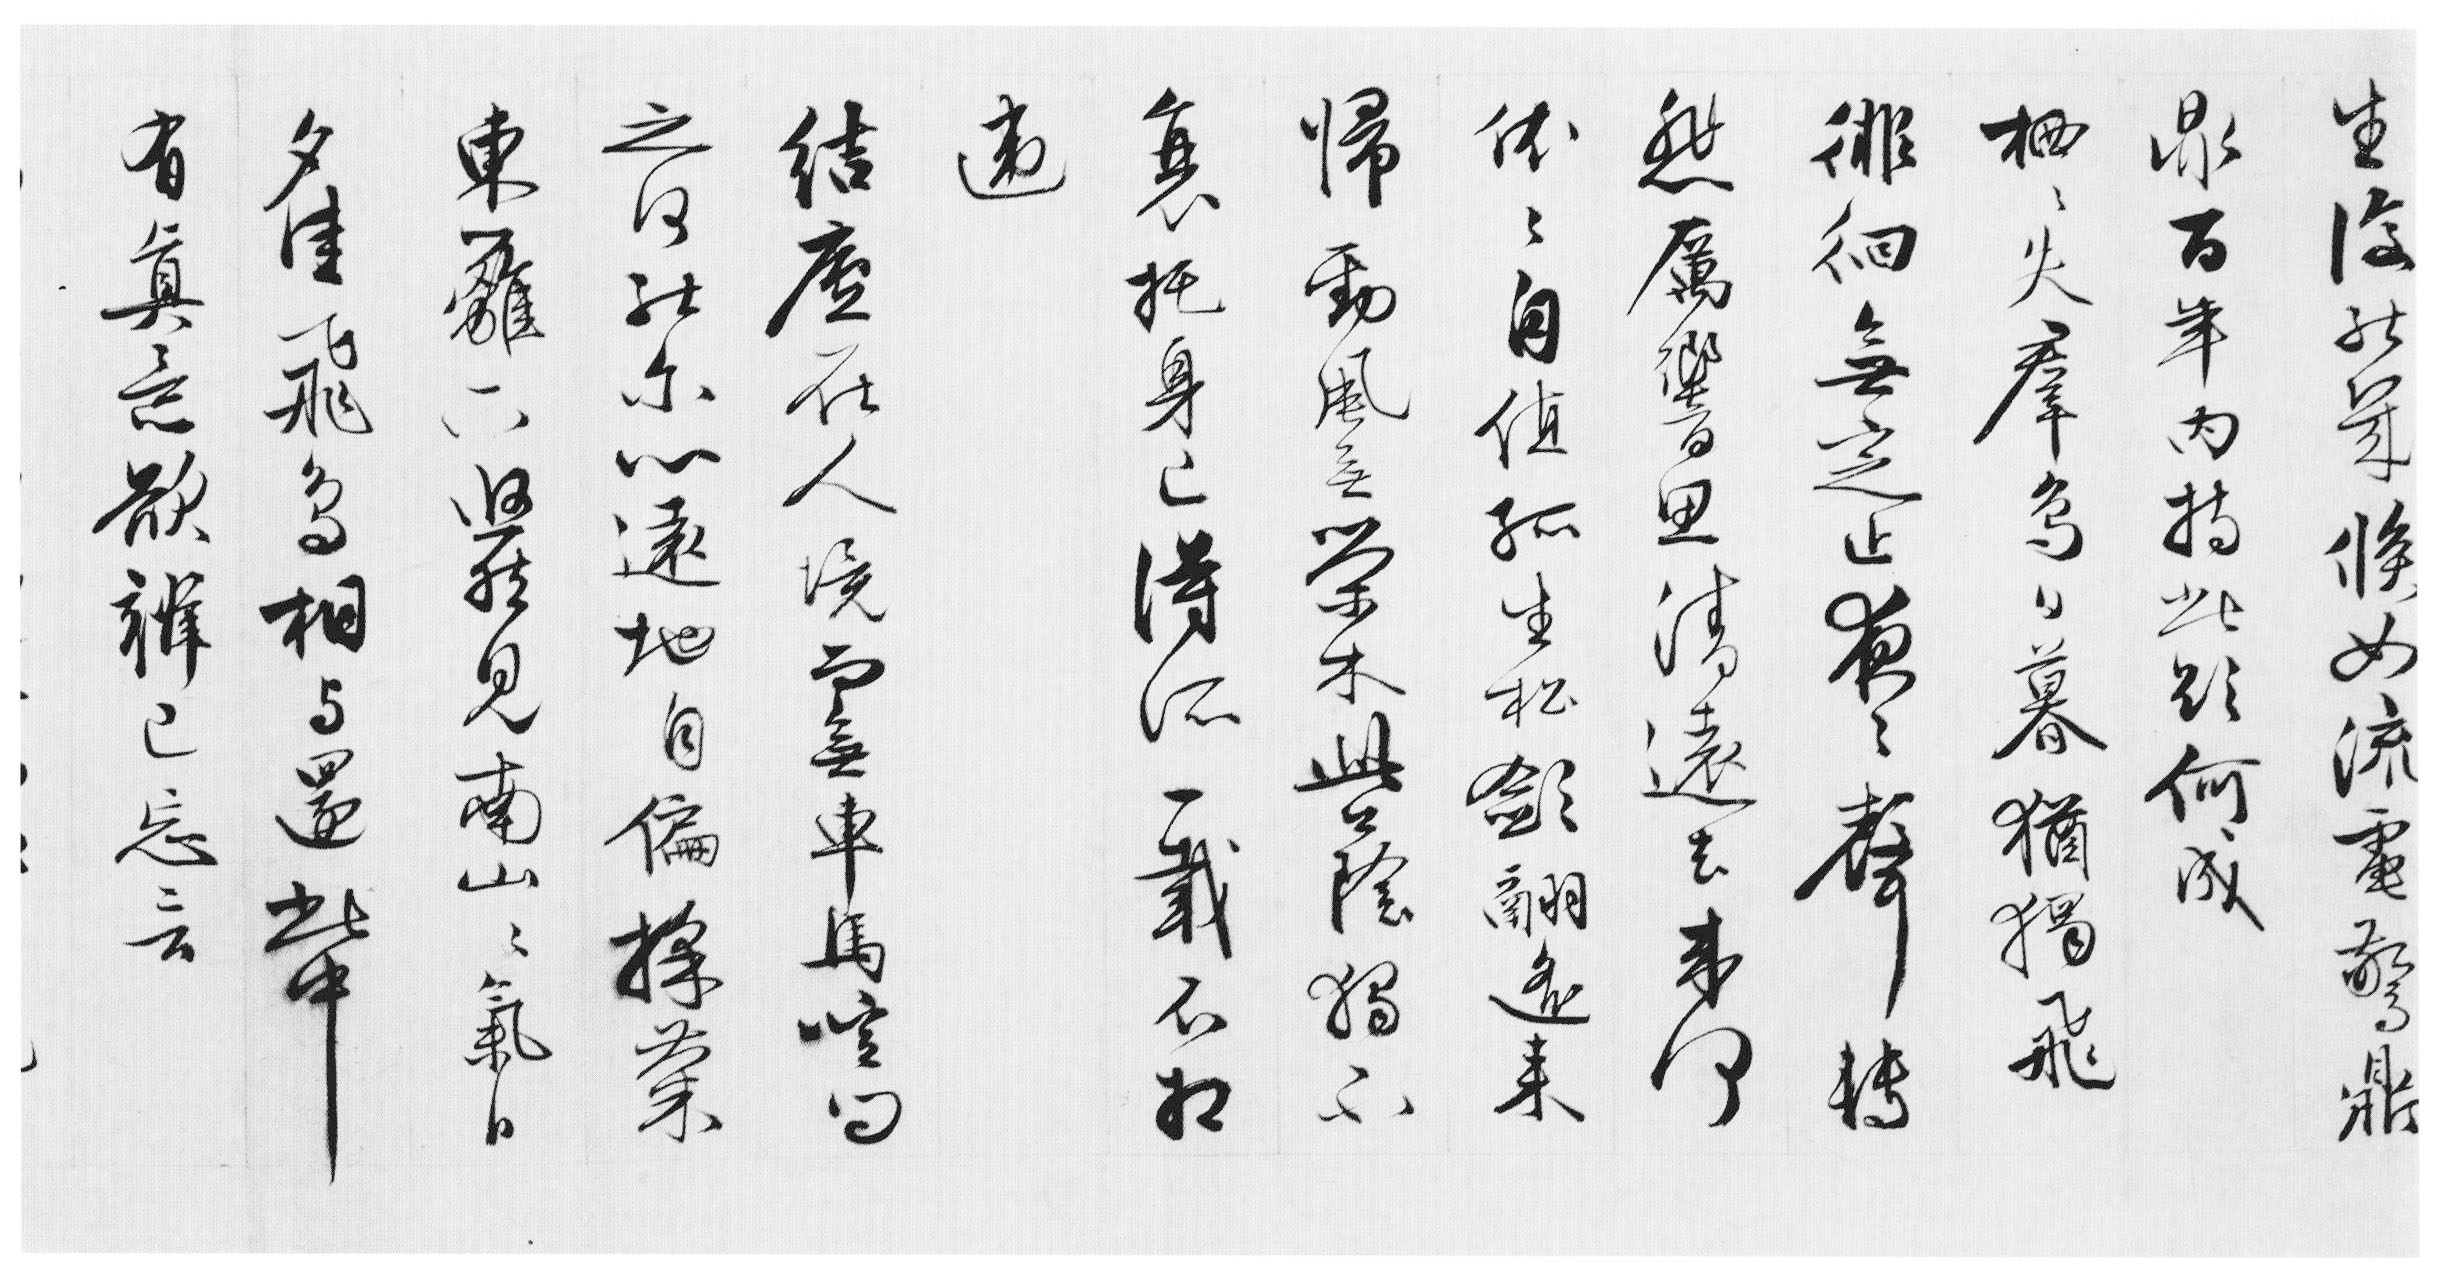 生復能幾倏如流電驚鼎
鼎百年内持此欲何成
栖〻失羣鳥日暮猶獨飛
徘徊無定止夜〻聲轉
悲厲響思清遠去來何
依〻自值孤生松斂翮遥來
歸勁風無榮木此蔭獨不
衰托身已得所千載不相
違
結廬在人境而無車馬喧問
之何能尔心遠地自偏採菊
東籬下悠然見南山〻氣日
夕佳飛鳥相与還此中
有真意欲辨已忘言